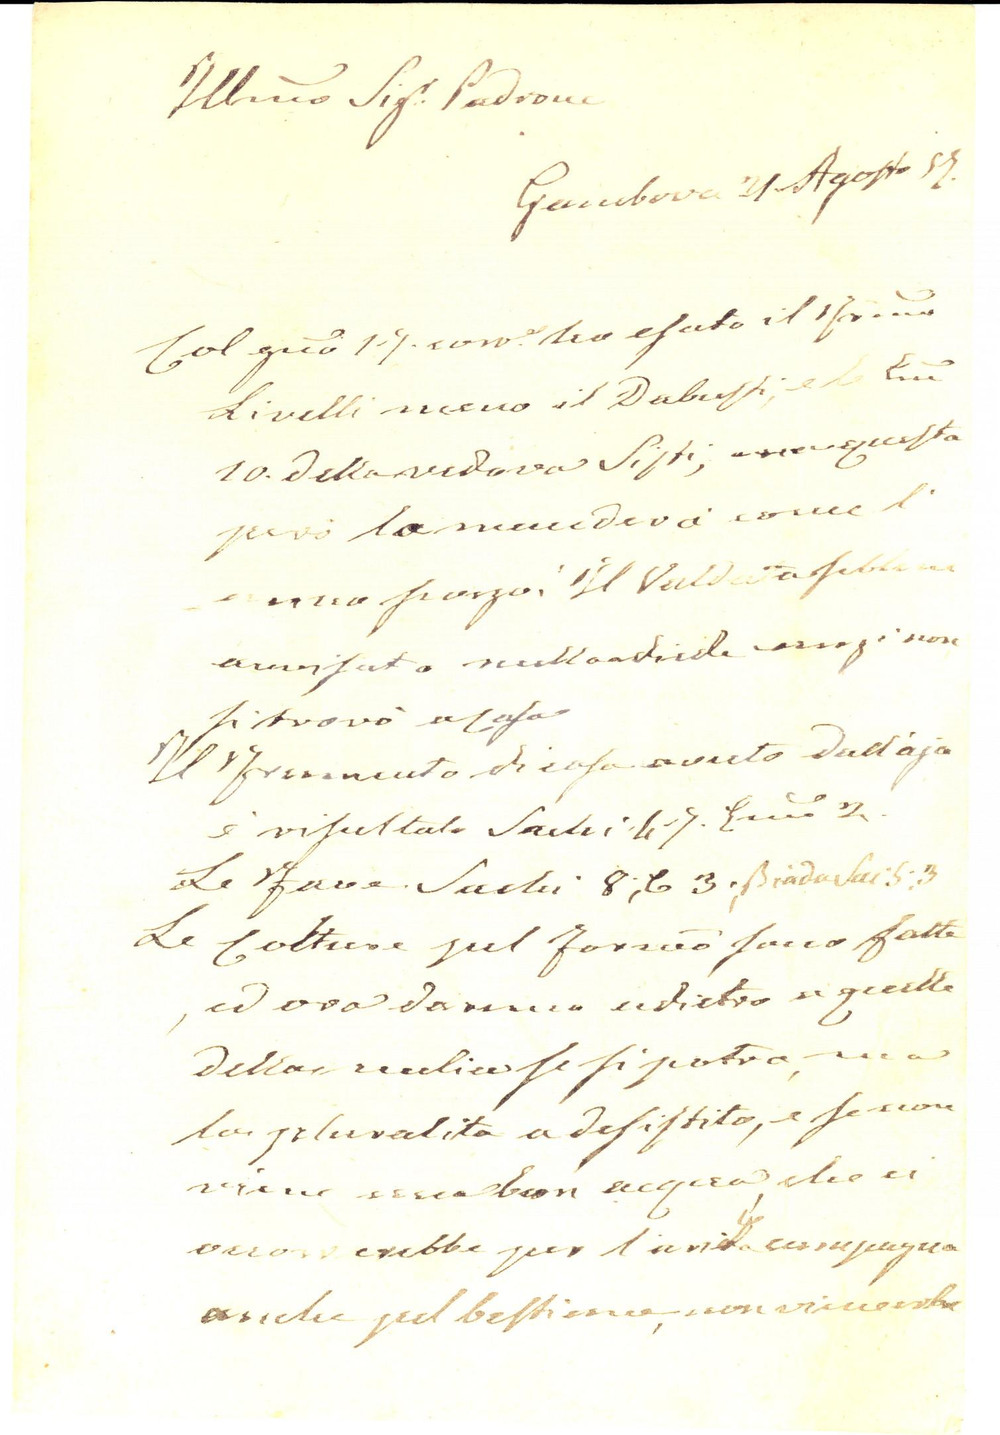 Illmo Sigr. Padrone
Gambova 21 Agosto 57.
Col gno 17. corr. ho esato il Frmo
Livelli meno il Dabusti, e le Em
10. della vedova Sisti, ma questa
però la manderà come l'
anno scorso. Il Valdata sebbene
avvisato nulla diede anzi non
si trovò a casa
Il Frumento di casa avuto dall'aja
è risultato Sachi 47. Emo 2.
Le Fave Sachi 8; E 3. Biada Sac 5: 3
Le Colture pel Formto sono fatte
ed ora daremo adietro a quelle
della melica se si potra, ma
la pluralita a desistito, e se non
viene una buon acqua, che ci
occorrerebbe per l'arida campagna
anche pel bestiame, non